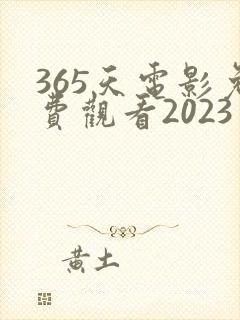 365天電影免
費觀看2023
黃土